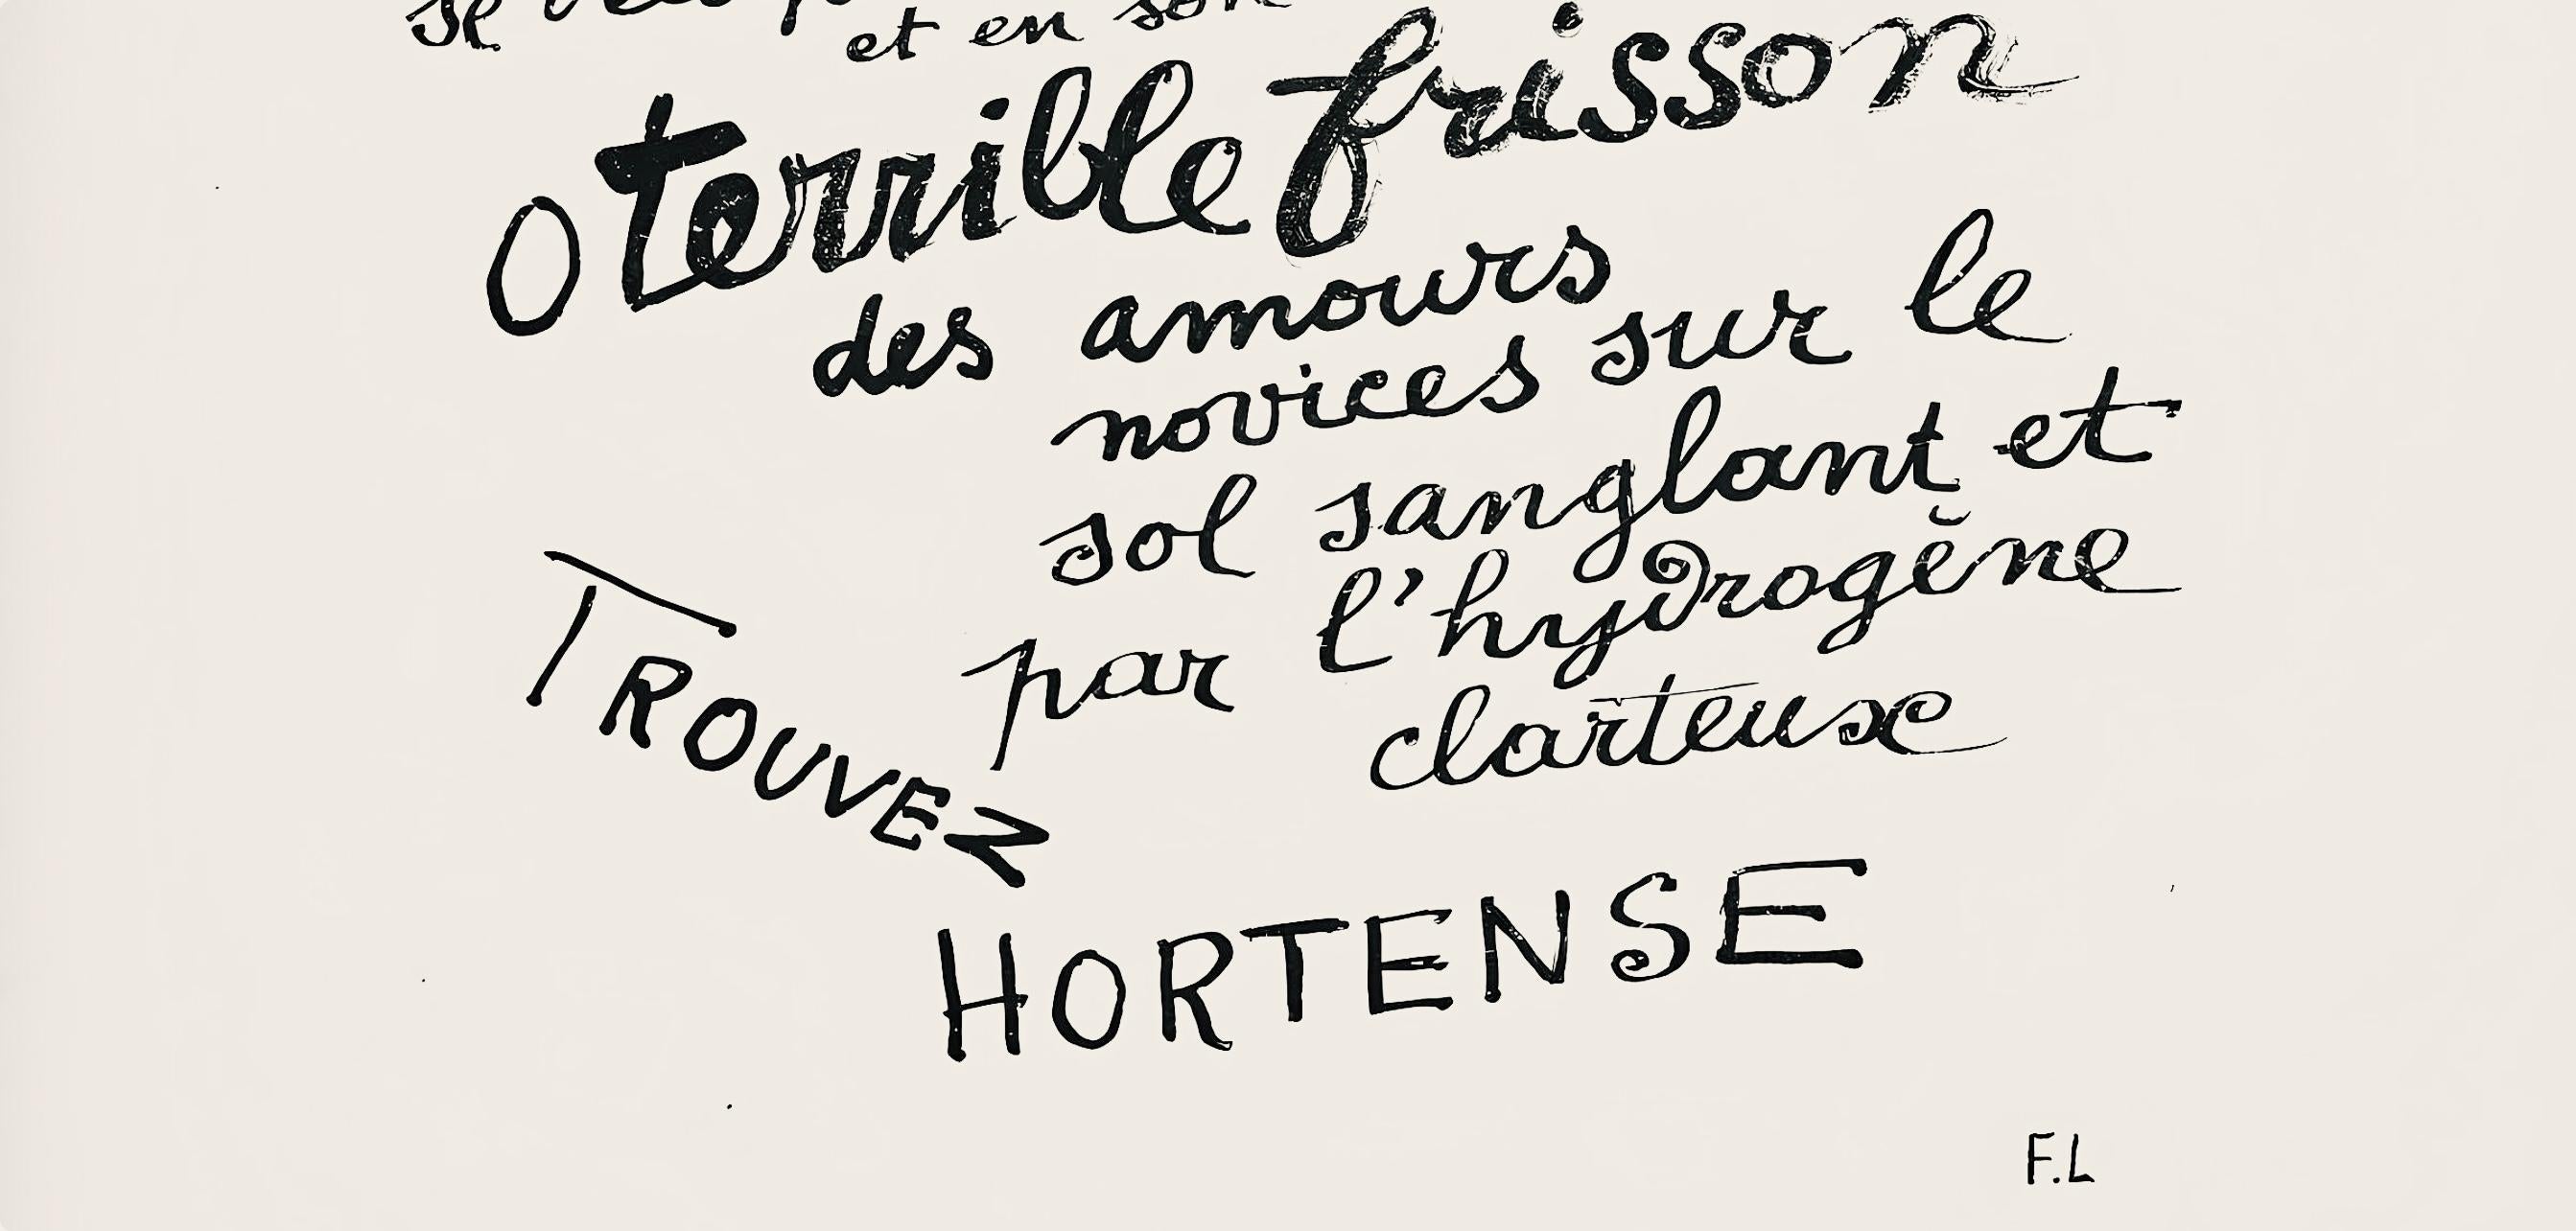 se
et en son
O terrible frisson
des amours
novices sur le
sol sanglant et
par l'hydrogène
clarteux
TROUVEZ
HORTENSE
F.L